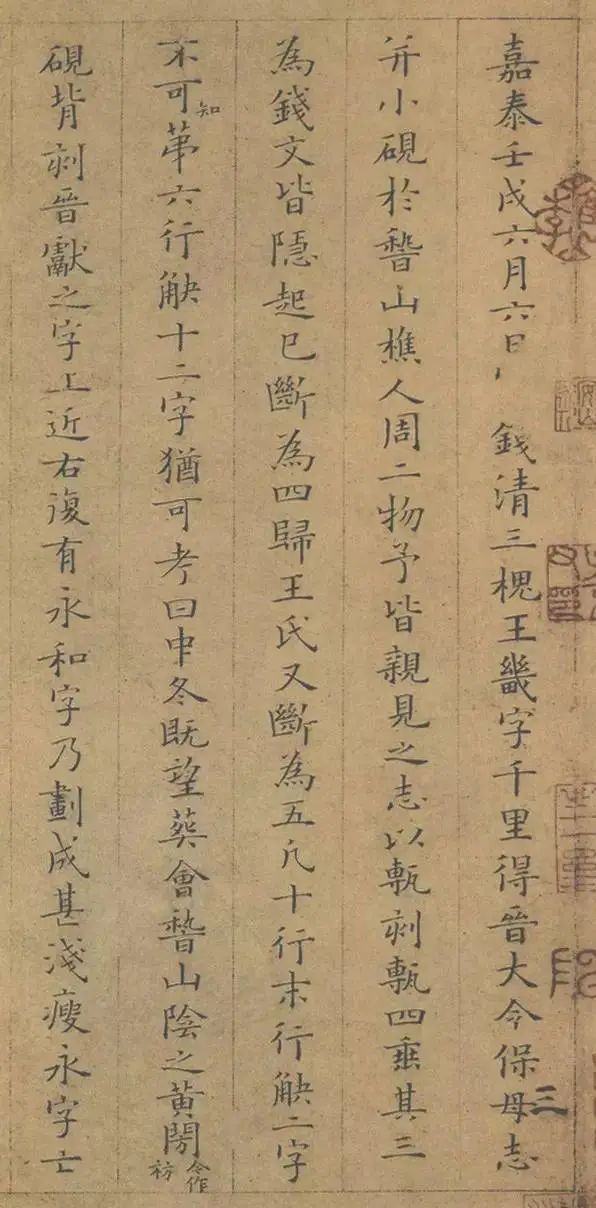 嘉泰壬戌六月六日 錢清三槐王畿字千里得晉大令保母志三
并小硯於稽山樵人周二物予皆親見之志以甎刻甎四垂其三
為錢文皆隱起已斷為四歸王氏又斷為五凡十行末行缺二字
不可知苐六行缺十二字猶可考曰中冬既望葬會稽山陰之黃閍合作祊
硯背刻晉獻之字上近右復有永和字乃劃成甚淺瘦永字亡